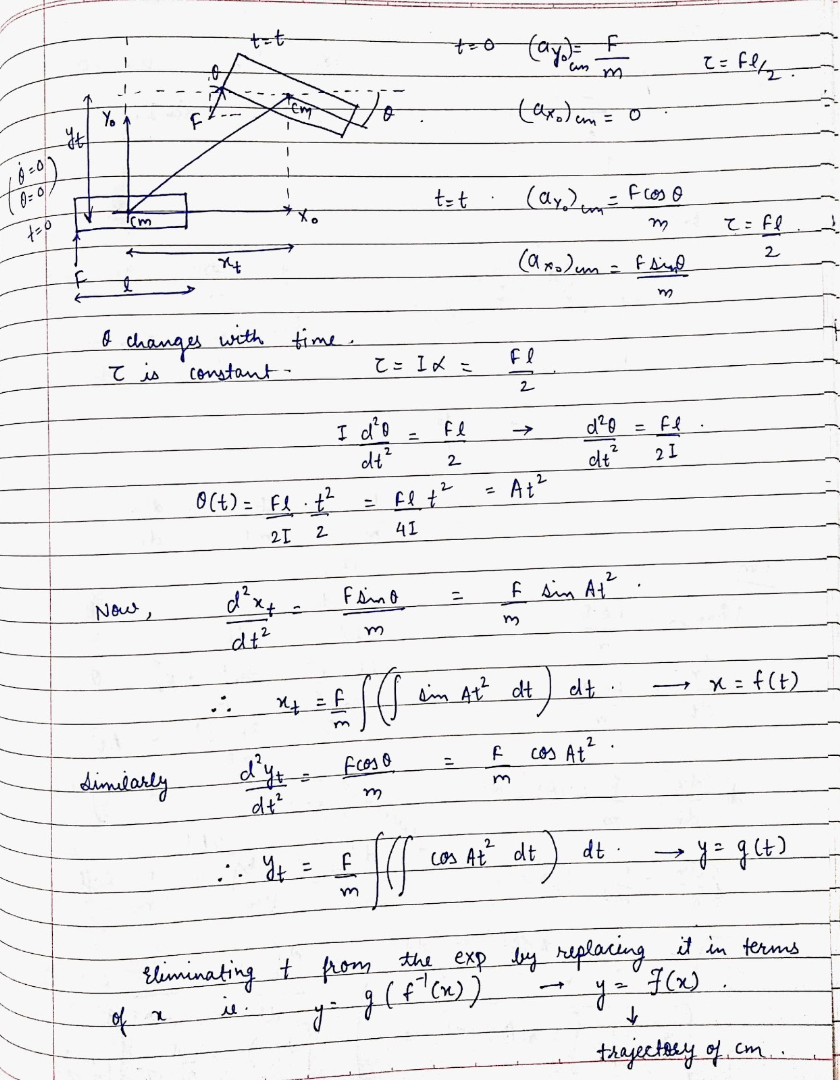 t=t
t=0 (a_{y_0})_{cm} = F/m τ = Fl/2.
θ
cm
F
θ
(a_{x_0})_{cm} = 0
Y₀
y_t
(θ̇=0
θ=0)
t=0
cm
x₀
x_t
F
l
t=t . (a_{y_0})_{cm} = F cos θ/m τ = Fl/2
(a_{x_0})_{cm} = F sin θ/m
θ changes with time.
τ is constant - τ = Iα = Fl/2
I d²θ/dt² = Fl/2 → d²θ/dt² = Fl/2I .
θ(t) = Fl/2I · t²/2 = Fl/4I t² = At²
Now, d²x_t/dt² = F sin θ/m = F/m sin At² .
∴ x_t = F/m ∫(∫ sin At² dt) dt . → x = f(t)
Similarly d²y_t/dt² = F cos θ/m = F/m cos At² .
∴ y_t = F/m ∫(∫ cos At² dt) dt . → y = g(t)
Eliminating t from the exp by replacing it in terms
of x ie. y = g(f⁻¹(x)) → y = F(x) .
↓
trajectory of cm .